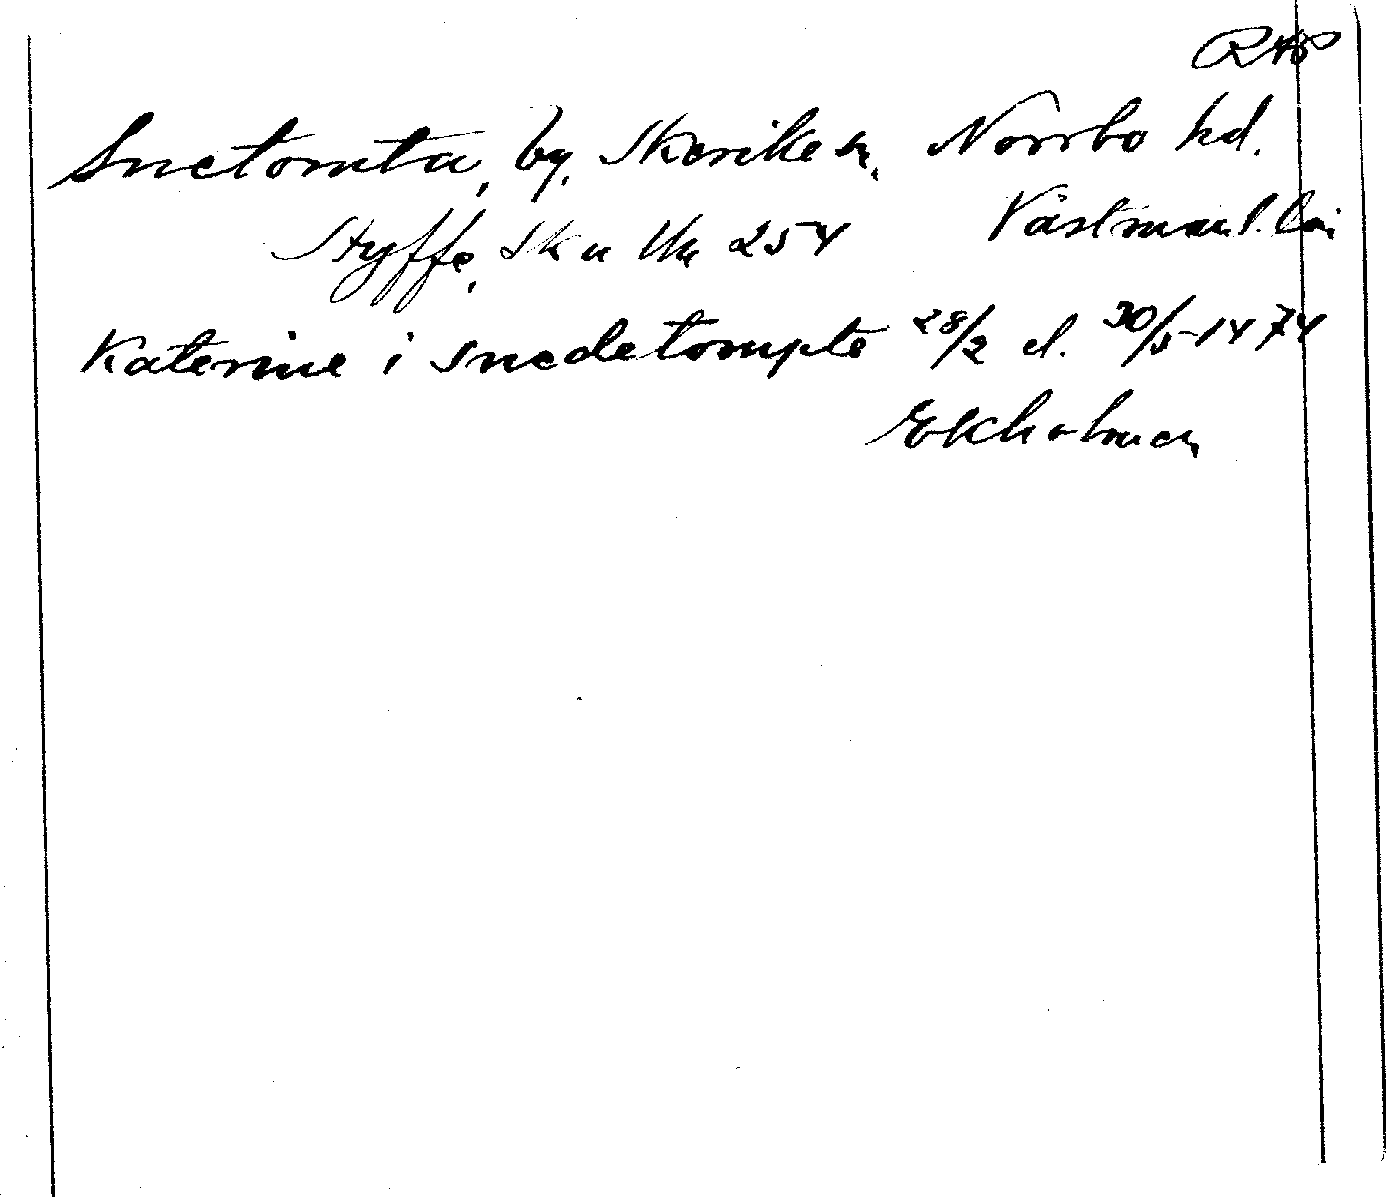 RAP
Snetomta, by, Skerike sn, Norrbo hd.
Styffe, Sk u Un 254 Västmanl. län
Katerine i snedetompte 28/2 el. 30/5 1474
Ekholmen